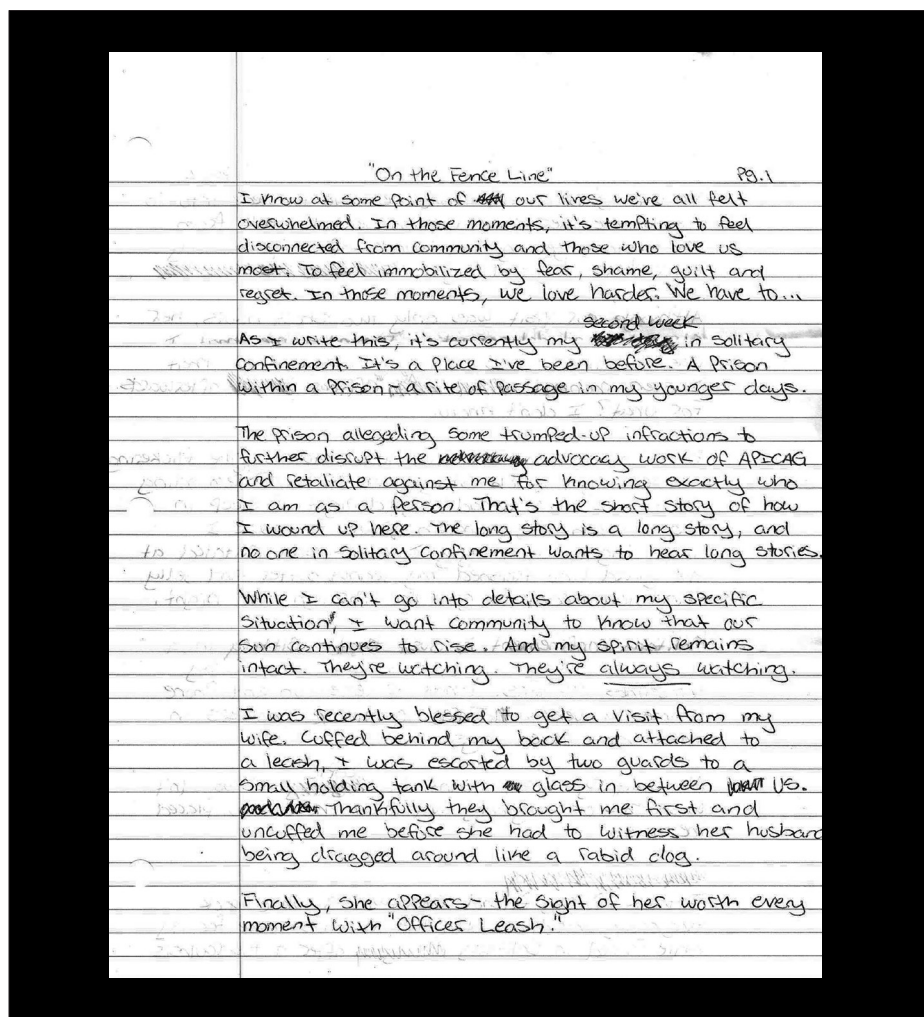 "On the Fence Line" Pg.1
I know at some point of our lives we've all felt
overwhelmed. In those moments, it's tempting to feel
disconnected from community and those who love us
most. To feel immobilized by fear, shame, guilt and
regret. In those moments, we love harder. We have to...
second week
As I write this, it's currently my in solitary
confinement. It's a place I've been before. A prison
within a prison, a rite of passage in my younger days.
The prison allegeding some trumped-up infractions to
further disrupt the advocacy work of APICAG
and retaliate against me for knowing exactly who
I am as a person. That's the short story of how
I wound up here. The long story is a long story, and
no one in solitary confinement wants to hear long stories.
While I can't go into details about my specific
situation, I want community to know that our
sun continues to rise. And my spirit remains
intact. They're watching. They're always watching.
I was recently blessed to get a visit from my
wife. Cuffed behind my back and attached to
a leash, I was escorted by two guards to a
small holding tank with glass in between us.
Thankfully they brought me first and
uncuffed me before she had to witness her husband
being dragged around like a rabid dog.
Finally, she appears - the sight of her worth every
moment with "Officer Leash."